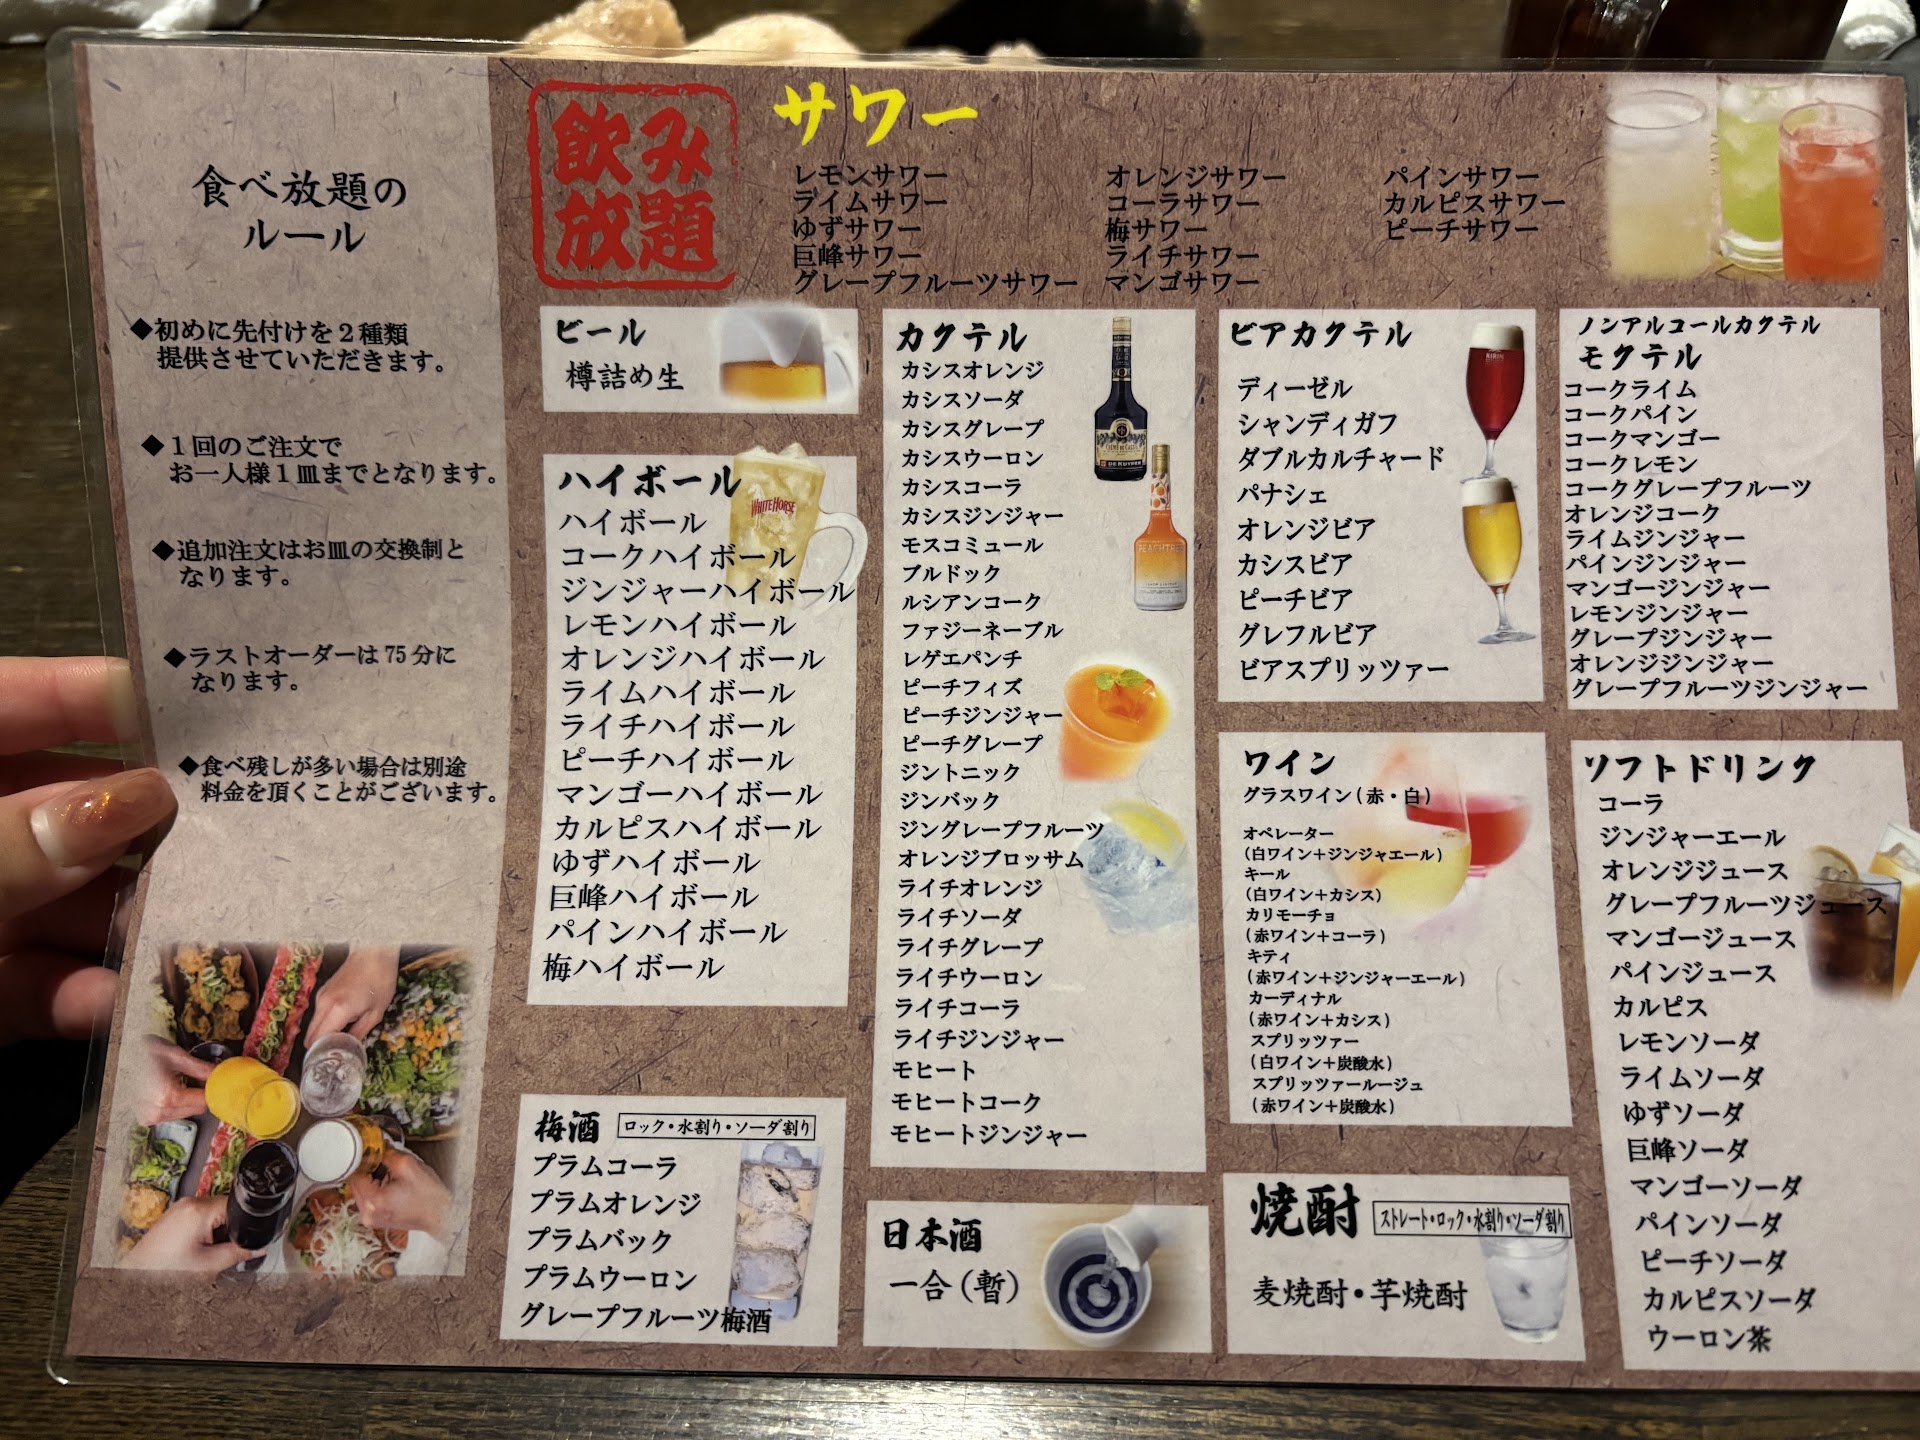 食べ放題の
ルール
◆初めに先付けを２種類
提供させていただきます。
◆１回のご注文で
お一人様１皿までとなります。
◆追加注文はお皿の交換制と
なります。
◆ラストオーダーは75分に
なります。
◆食べ残しが多い場合は別途
料金を頂くことがございます。
飲み
放題
サワー
レモンサワー
ライムサワー
ゆずサワー
巨峰サワー
グレープフルーツサワー
オレンジサワー
コーラサワー
梅サワー
ライチサワー
マンゴサワー
パインサワー
カルピスサワー
ピーチサワー
ビール
樽詰め生
ハイボール
WHITE HORSE
ハイボール
コークハイボール
ジンジャーハイボール
レモンハイボール
オレンジハイボール
ライムハイボール
ライチハイボール
ピーチハイボール
マンゴーハイボール
カルピスハイボール
ゆずハイボール
巨峰ハイボール
パインハイボール
梅ハイボール
梅酒
ロック・水割り・ソーダ割り
プラムコーラ
プラムオレンジ
プラムバック
プラムウーロン
グレープフルーツ梅酒
カクテル
カシスオレンジ
カシスソーダ
カシスグレープ
カシスウーロン
カシスコーラ
カシスジンジャー
モスコミュール
ブルドック
ルシアンコーク
ファジーネーブル
レゲエパンチ
ピーチフィズ
ピーチジンジャー
ピーチグレープ
ジントニック
ジンバック
ジングレープフルーツ
オレンジブロッサム
ライチオレンジ
ライチソーダ
ライチグレープ
ライチウーロン
ライチコーラ
ライチジンジャー
モヒート
モヒートコーク
モヒートジンジャー
DE KUYPER
PEACHTREE
日本酒
一合（暫）
ビアカクテル
ディーゼル
シャンディガフ
ダブルカルチャード
パナシェ
オレンジビア
カシスビア
ピーチビア
グレフルビア
ビアスプリッツァー
KIRIN
ワイン
グラスワイン（赤・白）
オペレーター
（白ワイン＋ジンジャエール）
キール
（白ワイン＋カシス）
カリモーチョ
（赤ワイン＋コーラ）
キティ
（赤ワイン＋ジンジャーエール）
カーディナル
（赤ワイン＋カシス）
スプリッツァー
（白ワイン＋炭酸水）
スプリッツァールージュ
（赤ワイン＋炭酸水）
焼酎
ストレート・ロック・水割り・ソーダ割り
麦焼酎・芋焼酎
ノンアルコールカクテル
モクテル
コークライム
コークパイン
コークマンゴー
コークレモン
コークグレープフルーツ
オレンジコーク
ライムジンジャー
パインジンジャー
マンゴージンジャー
レモンジンジャー
グレープジンジャー
オレンジジンジャー
グレープフルーツジンジャー
ソフトドリンク
コーラ
ジンジャーエール
オレンジジュース
グレープフルーツジュース
マンゴージュース
パインジュース
カルピス
レモンソーダ
ライムソーダ
ゆずソーダ
巨峰ソーダ
マンゴーソーダ
パインソーダ
ピーチソーダ
カルピスソーダ
ウーロン茶